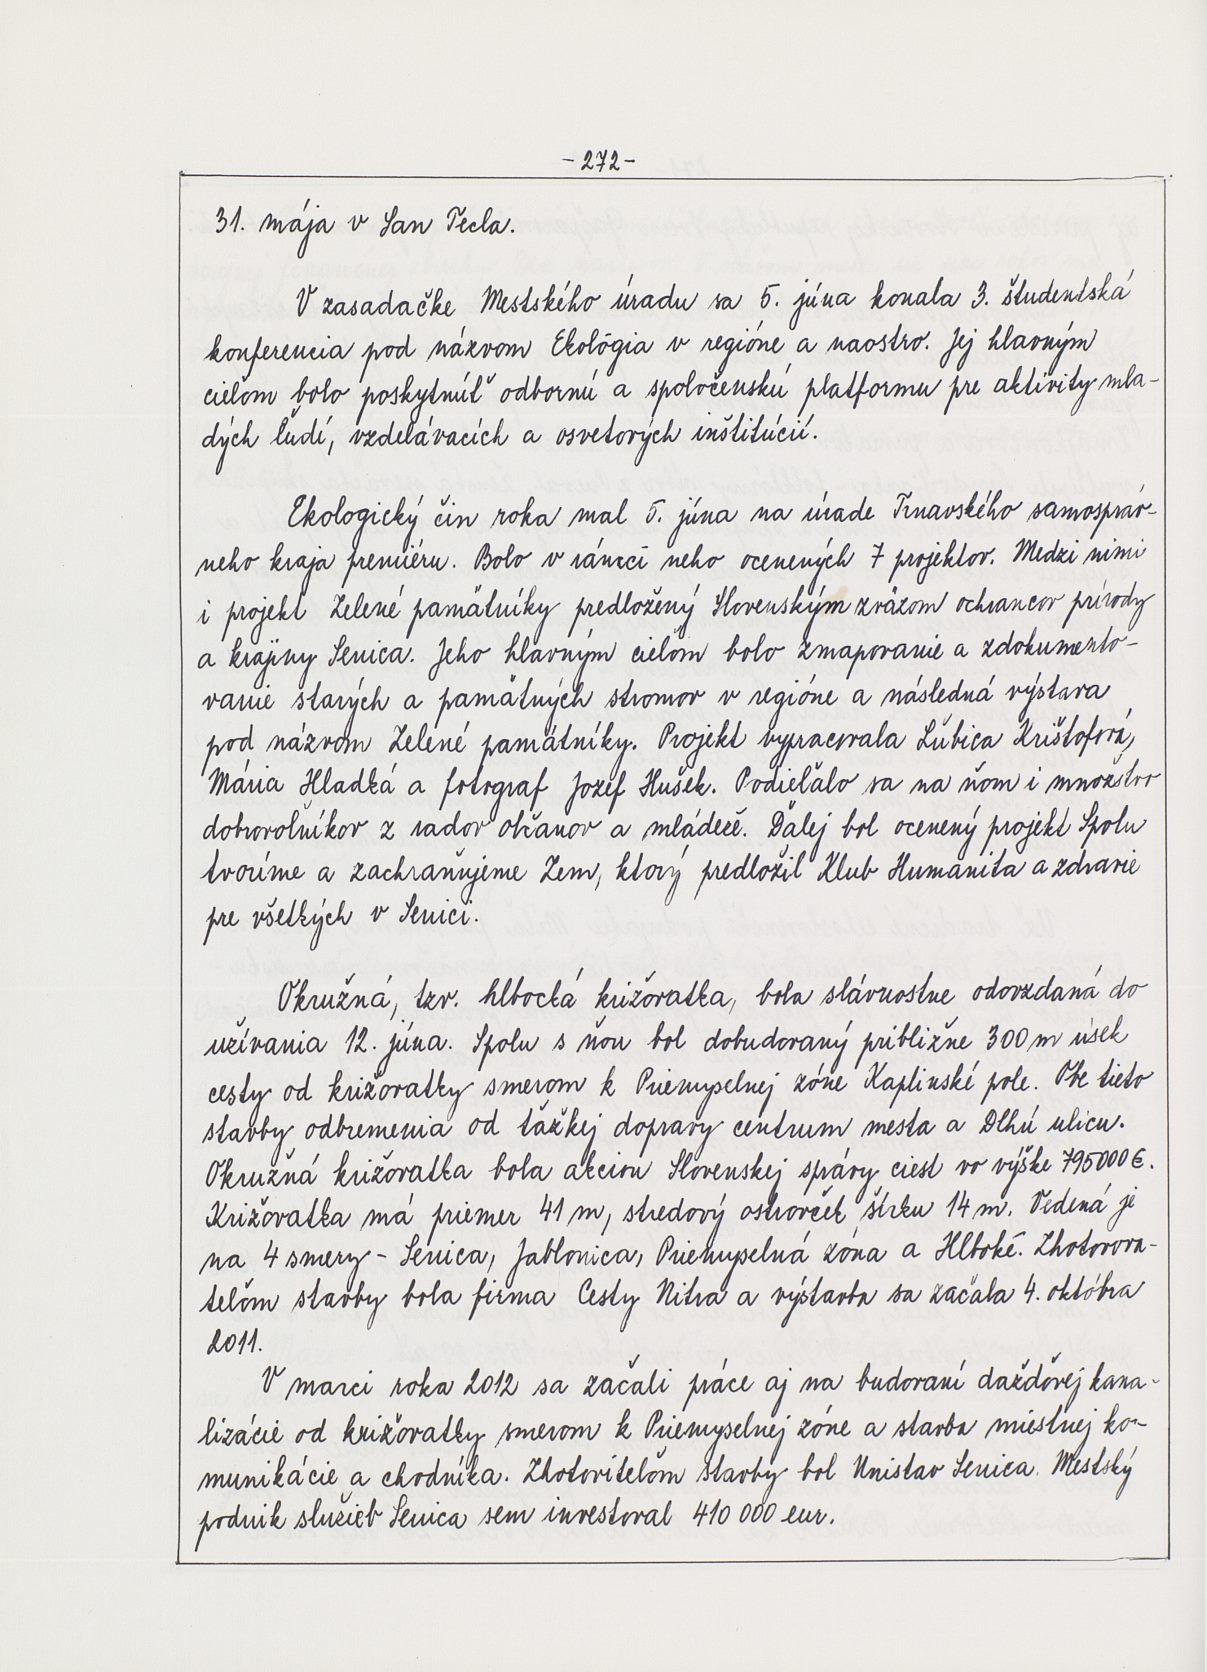 - 272 -
31. mája v San Tecla.
V zasadačke Mestského úradu sa 5. júna konala 3. študentská
konferencia pod názvom Ekológia v regióne a naostro. Jej hlavným
cieľom bolo poskytnúť odbornú a spoločenskú platformu pre aktivity mla-
dých ľudí, vzdelávacích a osvetových inštitúcií.
Ekologický čin roka mal 5. júna na úrade Trnavského samospráv-
neho kraja premiéru. Bolo v rámci neho ocenených 7 projektov. Medzi nimi
i projekt Zelené pamätníky predložený Slovenským zväzom ochrancov prírody
a krajiny Senica. Jeho hlavným cieľom bolo zmapovanie a zdokumento-
vanie starých a pamätných stromov v regióne a následná výstava
pod názvom Zelené pamätníky. Projekt vypracovala Ľubica Krištofová,
Mária Hladká a fotograf Jozef Hušek. Podieľalo sa na ňom i množstvo
dobrovoľníkov z radov občanov a mládeže. Ďalej bol ocenený projekt Spolu
tvoríme a zachraňujeme Zem, ktorý predložil Klub Humanita a zdravie
pre všetkých v Senici.
Okružná, tzv. hlbocká križovatka, bola slávnostne odovzdaná do
užívania 12. júna. Spolu s ňou bol dobudovaný približne 300 m úsek
cesty od križovatky smerom k Priemyselnej zóne Kaplinské pole. Obe tieto
stavby odbremenia od ťažkej dopravy centrum mesta a Dlhú ulicu.
Okružná križovatka bola akciou Slovenskej správy ciest vo výške 795000 €.
Križovatka má priemer 41 m, stredový ostrovček šírku 14 m. Vedená je
na 4 smery - Senica, Jablonica, Priemyselná zóna a Hlboké. Zhotovova-
teľom stavby bola firma Cesty Nitra a výstavba sa začala 4. októbra
2011.
V marci roka 2012 sa začali práce aj na budovaní dažďovej kana-
lizácie od križovatky smerom k Priemyselnej zóne a stavba miestnej ko-
munikácie a chodníka. Zhotoviteľom stavby bol Unistav Senica. Mestský
podnik služieb Senica sem investoval 410 000 eur.